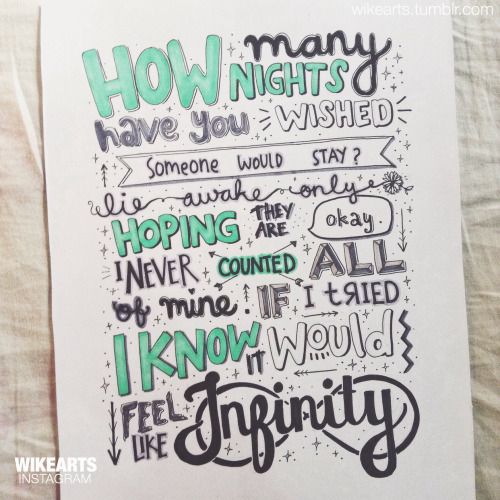 wikearts.tumblr.com
HOW many
NIGHTS
have you WISHED
SOMEONE WOULD STAY?
lie awake only
HOPING THEY ARE okay
I NEVER COUNTED ALL
of mine. IF I tRIED
I KNOW IT WOULD
FEEL LIKE Infinity
WIKEARTS
INSTAGRAM